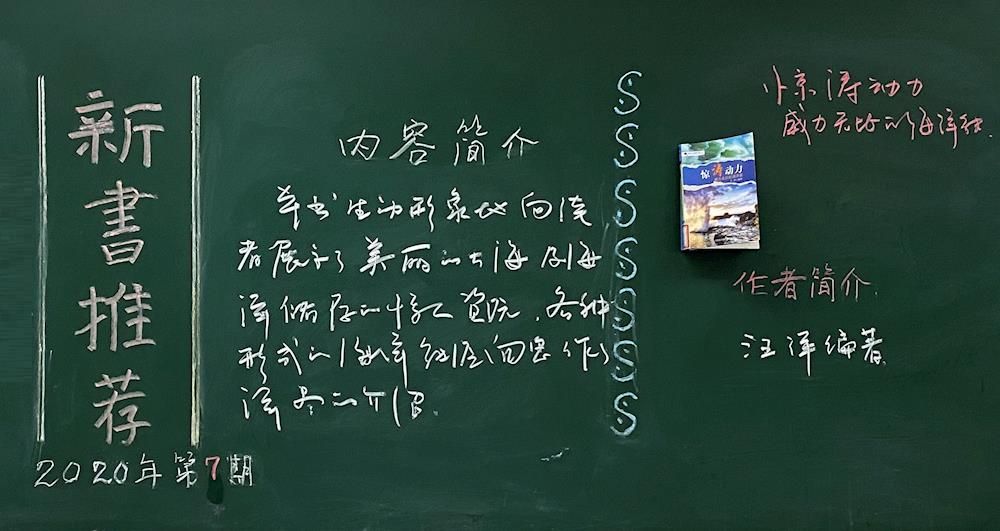 新書推荐
2020年第7期
内容简介
本书生动形象地向读
者展示了美丽的大海及海
洋储存的十大资源、各种
形式的海洋能源向您作了
详尽的介绍。
惊涛动力
威力无比的海洋能
惊涛动力
作者简介
汪洋编著